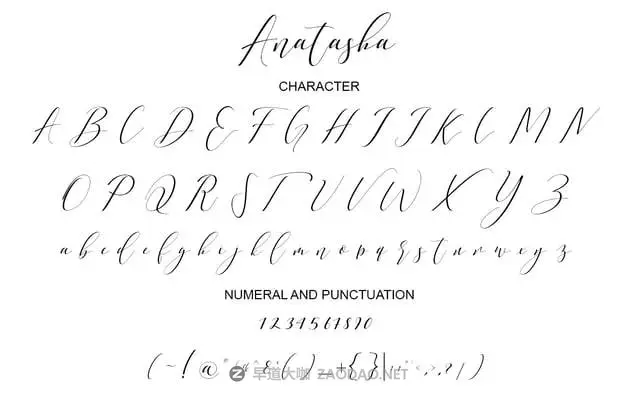 Anatasha
CHARACTER
A B C D E F G H I J K L M N
O P Q R S T U V W X Y Z
a b c d e f g h i j k l m n o p q r s t u v w x y z
NUMERAL AND PUNCTUATION
1 2 3 4 5 6 7 8 9 0
早道大咖 ZAODAO.NET